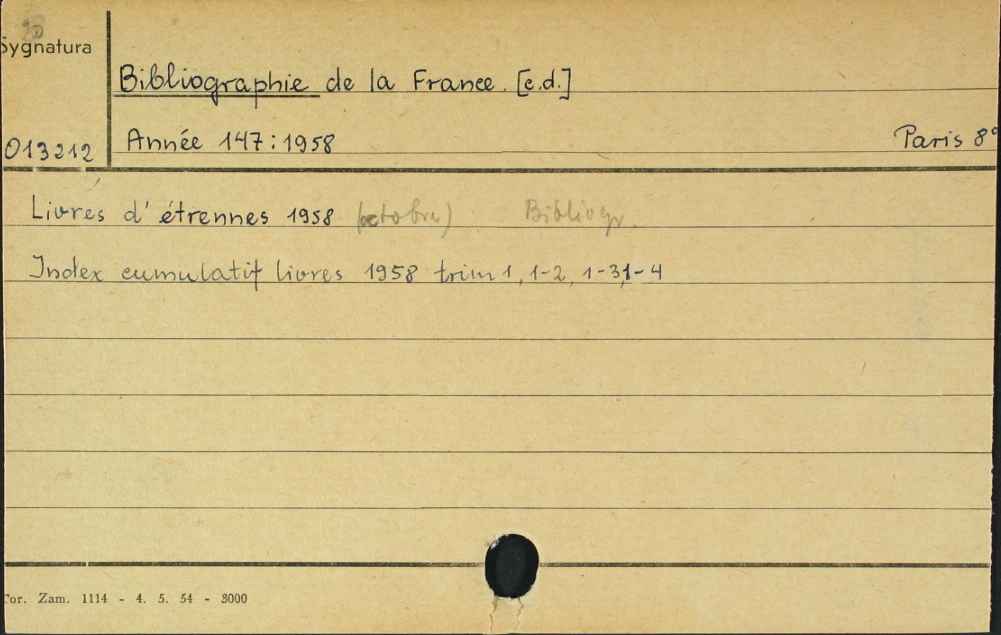 Sygnatura
Bibliographie de la France. [c.d.]
013212
Année 147:1958 Paris 8°
Livres d'étrennes 1958 (octobre) Bibliogr.
Index cumulatif livres 1958 trim 1, 1-2, 1-3, 1-4
Tor. Zam. 1114 - 4. 5. 54 - 3000